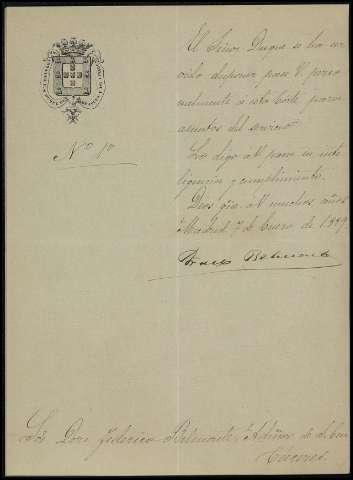 Nº 1º
El Señor Duque se ha ser
vido disponer pase V. perso
nalmente a esta Corte para
asuntos del servicio
Lo digo a V. para su inte
ligencia y cumplimiento.
Dios gue. a V. muchos años
Madrid 7 de Enero de 1889.
Belmonte
Sor. Don Federico Belmonte, Admor. de S. E. en
Cáceres.